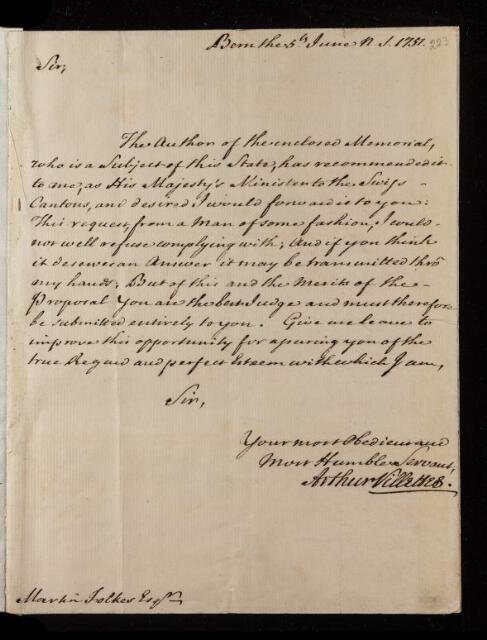 Bern the 5th June N.S. 1751.
223
Sir,
The Author of the enclosed Memorial,
who is a Subject of this State, has recommended it
to me, as His Majesty's Minister to the Swiss
Cantons, and desired I would forward it to you:
This request, from a Man of some fashion, I could
not well refuse complying with; And if you think
it deserves an Answer it may be transmitted thrõ
my hands; But of this and the Merits of the
Proposal You are the best Judge and must therefore
be submitted entirely to you. Give me leave to
improve this opportunity for assuring you of the
true Regard and perfect Esteem with which I am,
Sir,
Your most Obedient and
Most Humble Servant,
Arthur Villettes.
Martin Folkes Esqr.